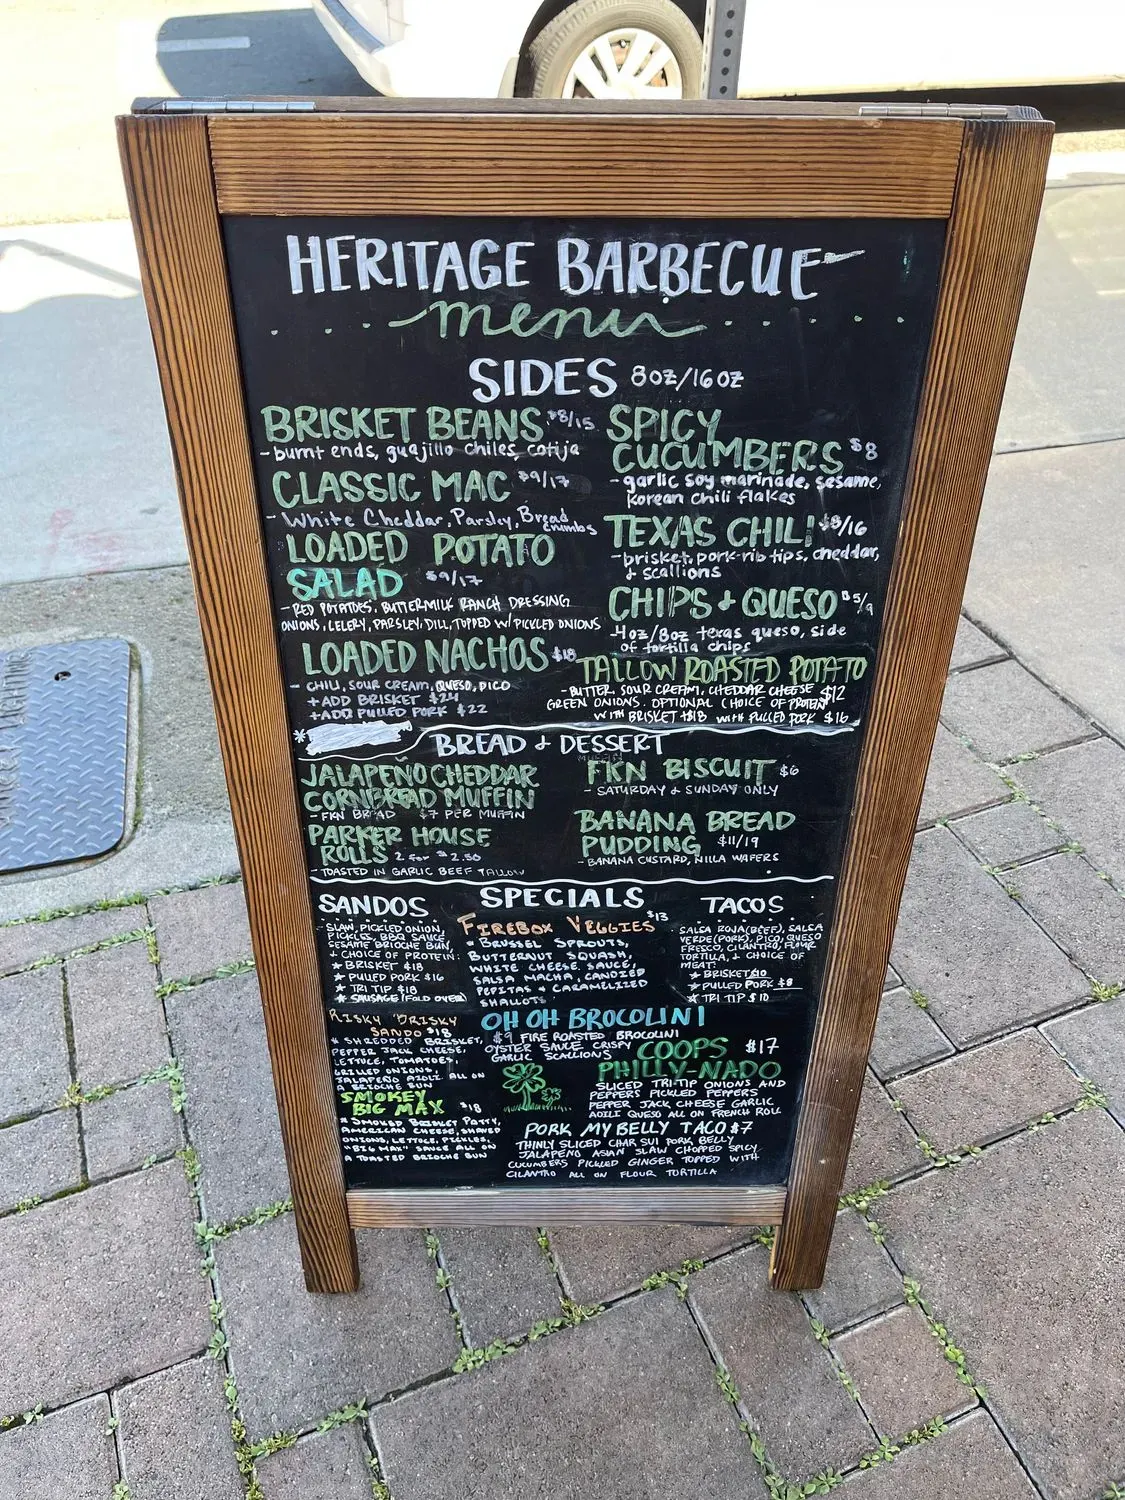 HERITAGE BARBECUE
menu
SIDES 8oz/16oz
BRISKET BEANS $8/15
- burnt ends, guajillo chiles, cotija
CLASSIC MAC $9/17
- White Cheddar, Parsley, Bread crumbs
LOADED POTATO
SALAD $9/17
- RED POTATOES, BUTTERMILK RANCH DRESSING
ONIONS, CELERY, PARSLEY, DILL, TOPPED W/ PICKLED ONIONS
LOADED NACHOS $18
- CHILI, SOUR CREAM, QUESO, PICO
+ ADD BRISKET $24
+ ADD PULLED PORK $22
SPICY
CUCUMBERS $8
- garlic soy marinade, sesame,
Korean chili flakes
TEXAS CHILI $8/16
- brisket, pork-rib tips, cheddar,
& scallions
CHIPS & QUESO $5/9
- 4oz/8oz texas queso, side
of tortilla chips
TALLOW ROASTED POTATO
- BUTTER, SOUR CREAM, CHEDDAR CHEESE $12
GREEN ONIONS. OPTIONAL CHOICE OF PROTEIN
WITH BRISKET $18 WITH PULLED PORK $16
* BREAD & DESSERT
JALAPEÑO CHEDDAR
CORNBREAD MUFFIN
- FKN BREAD $7 PER MUFFIN
PARKER HOUSE
ROLLS 2 for $2.50
- TOASTED IN GARLIC BEEF TALLOW
FKN BISCUIT $6
- SATURDAY & SUNDAY ONLY
BANANA BREAD
PUDDING $11/19
- BANANA CUSTARD, NILLA WAFERS
SPECIALS
SANDOS
- SLAW, PICKLED ONION,
PICKLES, BBQ SAUCE,
SESAME BRIOCHE BUN,
& CHOICE OF PROTEIN:
★ BRISKET $18
★ PULLED PORK $16
★ TRI TIP $18
★ SAUSAGE (FOLD OVER)
RISKY BRISKY
SANDO $18
* SHREDDED BRISKET,
PEPPER JACK CHEESE,
LETTUCE, TOMATOES,
GRILLED ONIONS,
JALAPEÑO AIOLI ALL ON
A BRIOCHE BUN
SMOKEY
BIG MAX $18
* SMOKED BRISKET PATTY,
AMERICAN CHEESE, SHAVED
ONIONS, LETTUCE, PICKLES,
"BIG MAX" SAUCE ALL ON
A TOASTED BRIOCHE BUN
FIREBOX VEGGIES $13
* BRUSSEL SPROUTS,
BUTTERNUT SQUASH,
WHITE CHEESE SAUCE,
SALSA MACHA, CANDIED
PEPITAS & CARAMELIZED
SHALLOTS
TACOS
SALSA ROJA (BEEF), SALSA
VERDE (PORK), PICO, QUESO
FRESCO, CILANTRO, FLOUR
TORTILLA, & CHOICE OF
MEAT:
★ BRISKET $10
★ PULLED PORK $8
★ TRI TIP $10
OH OH BROCOLINI
$9 FIRE ROASTED BROCOLINI
OYSTER SAUCE CRISPY
GARLIC SCALLIONS
COOPS $17
PHILLY-NADO
SLICED TRI-TIP ONIONS AND
PEPPERS PICKLED PEPPERS
PEPPER JACK CHEESE GARLIC
AOILI QUESO ALL ON FRENCH ROLL
PORK MY BELLY TACO $7
THINLY SLICED CHAR SUI PORK BELLY
JALAPEÑO ASIAN SLAW CHOPPED SPICY
CUCUMBERS PICKLED GINGER TOPPED WITH
CILANTRO ALL ON FLOUR TORTILLA